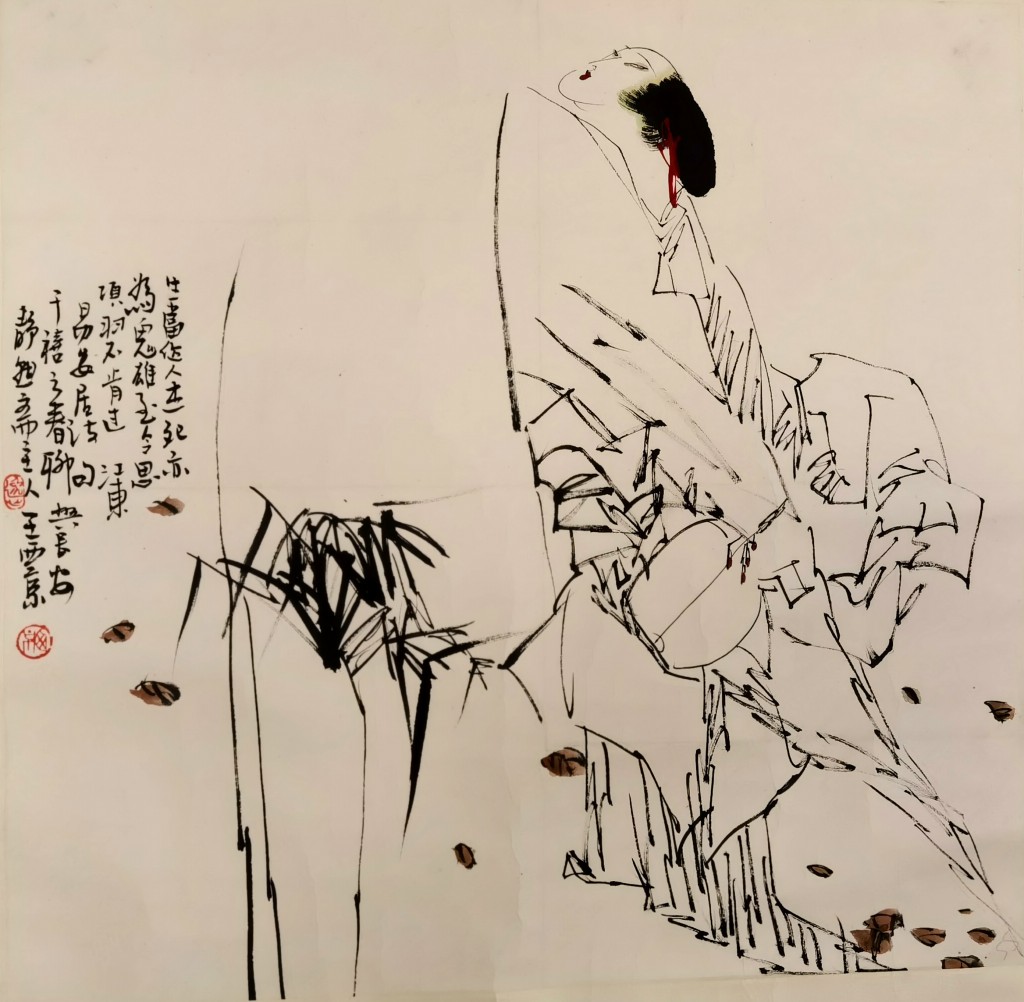 生當作人杰死亦
為鬼雄至今思
項羽不肯过江東
易安居士詩句
千禧之春聊與長安
靜思齋主人王西京